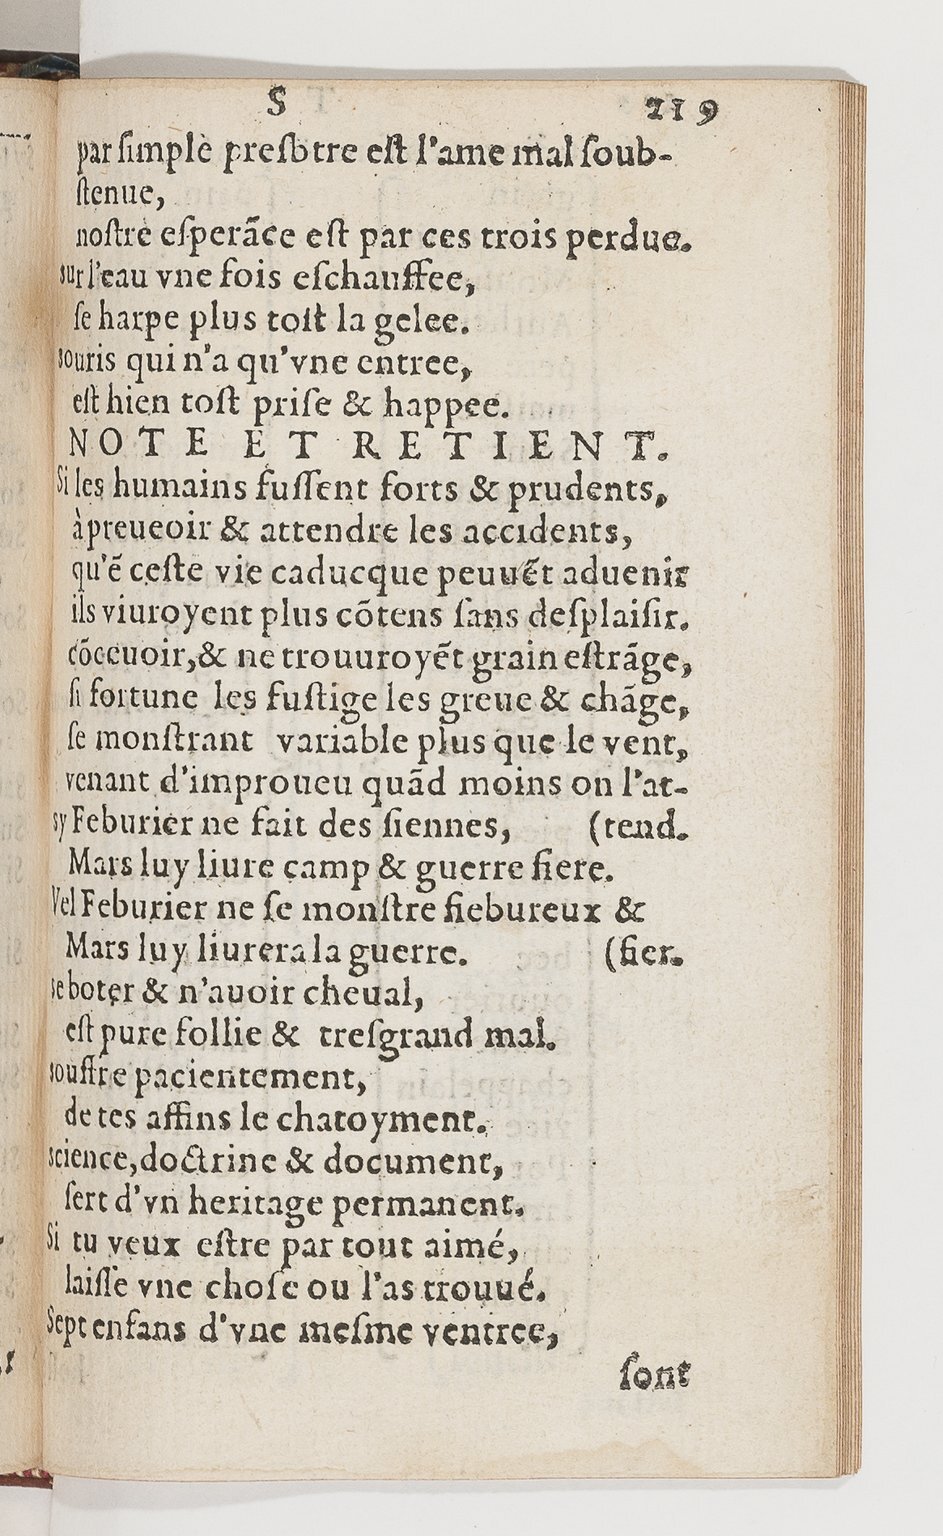 S 219
par ſimple preſbtre eſt l'ame mal ſoub-
ſtenue,
noſtre eſperãce eſt par ces trois perdue.
sur l'eau vne fois eſchauffee,
ſe harpe plus toſt la gelee.
souris qui n'a qu'vne entree,
eſt hien toſt priſe & happee.
NOTE ET RETIENT.
Si les humains fuſſent forts & prudents,
à preueoir & attendre les accidents,
qu'ẽ ceſte vie caducque peuuẽt aduenir
ils viuroyent plus cõtens ſans deſplaiſir.
cõceuoir, & ne trouuroyẽt grain eſtrãge,
ſi fortune les fuſtige les greue & chãge,
ſe monſtrant variable plus que le vent,
venant d'improueu quãd moins on l'at-
sy Feburier ne fait des ſiennes, (tend.
Mars luy liure camp & guerre fiere.
Vel Feburier ne ſe monſtre fiebureux &
Mars luy liurera la guerre. (fier.
se boter & n'auoir cheual,
eſt pure follie & treſgrand mal.
souffre pacientement,
de tes affins le chatoyment.
science, doctrine & document,
ſert d'vn heritage permanent.
Si tu veux eſtre par tout aimé,
laiſſe vne choſe ou l'as trouué.
Sept enfans d'vne meſme ventree,
ſont